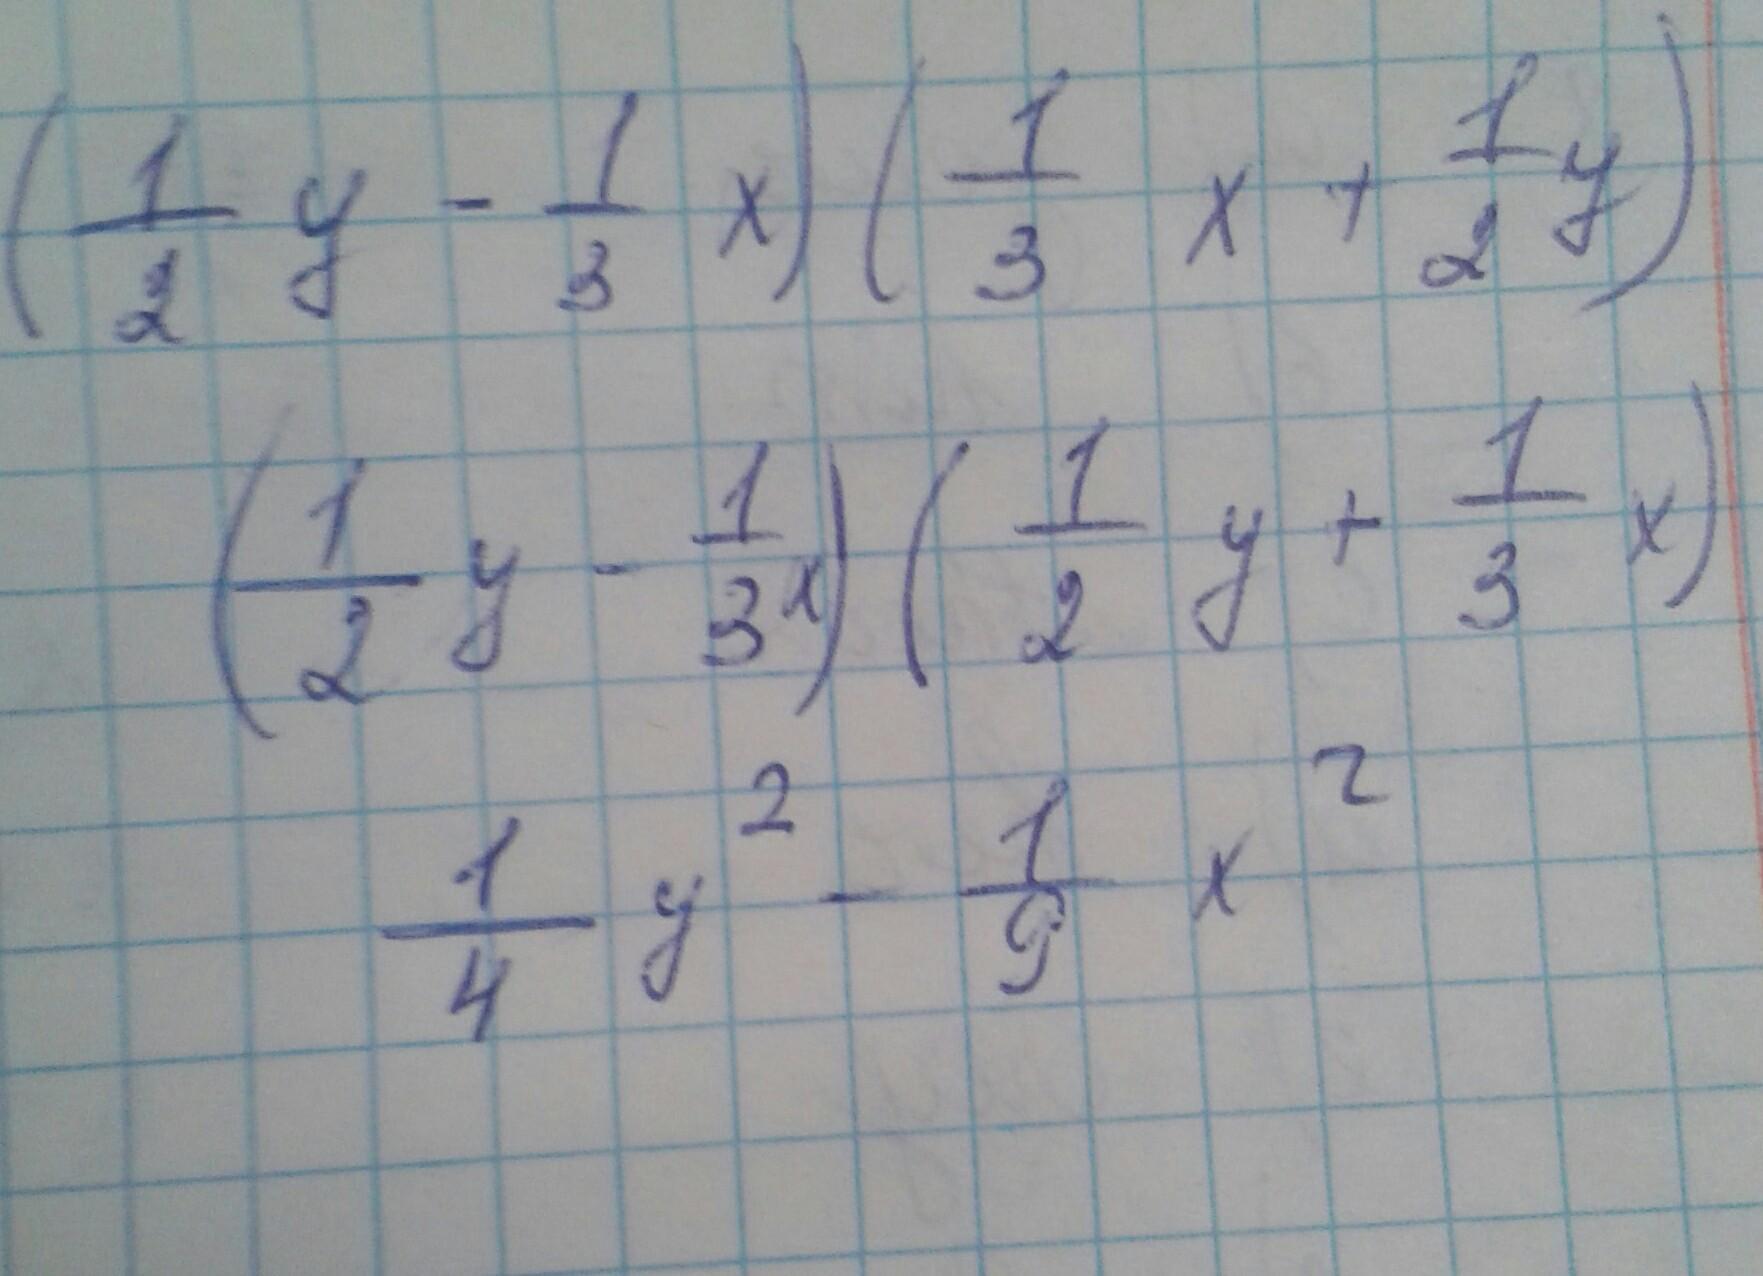 (1/2 y - 1/3 x)(1/3 x + 1/2 y)
(1/2 y - 1/3 x)(1/2 y + 1/3 x)
1/4 y² - 1/9 x²